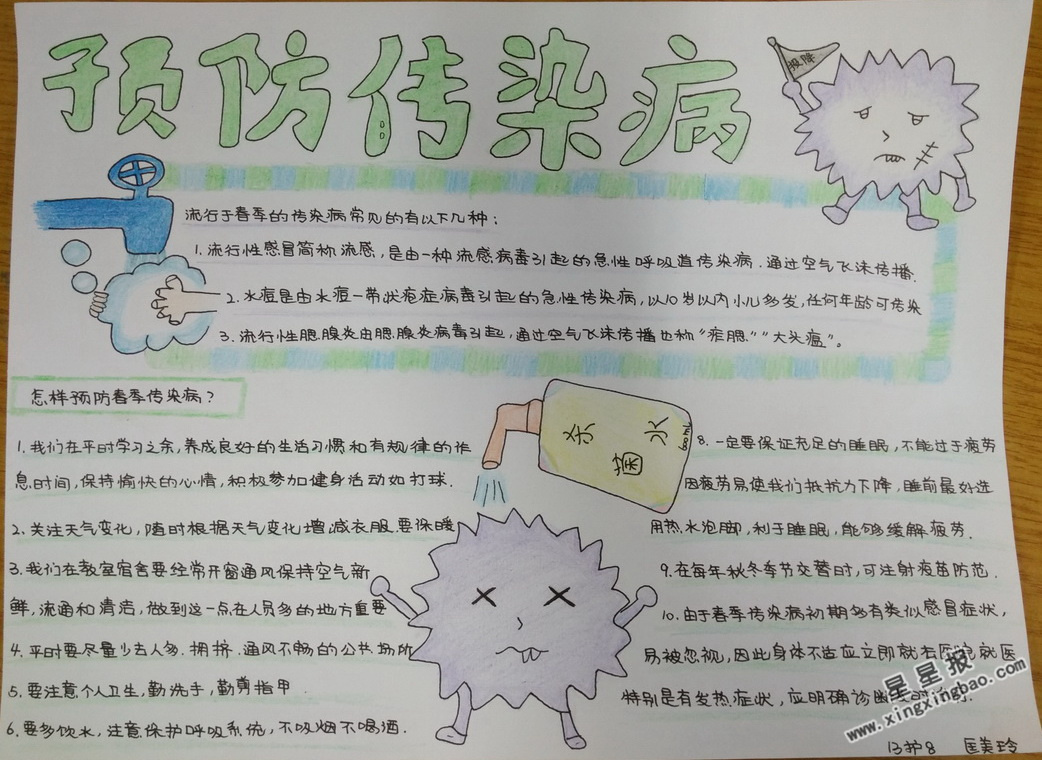 预防传染病
投降
流行于春季的传染病常见的有以下几种：
1. 流行性感冒简称流感，是由一种流感病毒引起的急性呼吸道传染病．通过空气飞沫传播．
2. 水痘是由水痘一带状疱症病毒引起的急性传染病，以10岁以内小儿多发，任何年龄可传染
3. 流行性腮腺炎由腮腺炎病毒引起，通过空气飞沫传播也称“痄腮”“大头瘟”。
怎样预防春季传染病？
1. 我们在平时学习之余，养成良好的生活习惯和有规律的作
息时间，保持愉快的心情，积极参加健身活动如打球．
2. 关注天气变化，随时根据天气变化增减衣服．要保暖
3. 我们在教室宿舍要经常开窗通风保持空气新
鲜，流通和清洁，做到这一点在人员多的地方重要
4. 平时要尽量少去人多．拥挤．通风不畅的公共场所
5. 要注意个人卫生，勤洗手，勤剪指甲
6. 要多饮水，注意保护呼吸系统，不吸烟不喝酒．
杀菌水
600ml
8. 一定要保证充足的睡眠，不能过于疲劳
因疲劳易使我们抵抗力下降，睡前最好选
用热水泡脚，利于睡眠，能够缓解疲劳．
9. 在每年秋冬季节交替时，可注射疫苗防范．
10. 由于春季传染病初期多有类似感冒症状，
易被忽视，因此身体不适应立即就去医院就医
特别是有发热症状，应明确诊断
13护8 匡美玲
星星报
www.xingxingbao.com